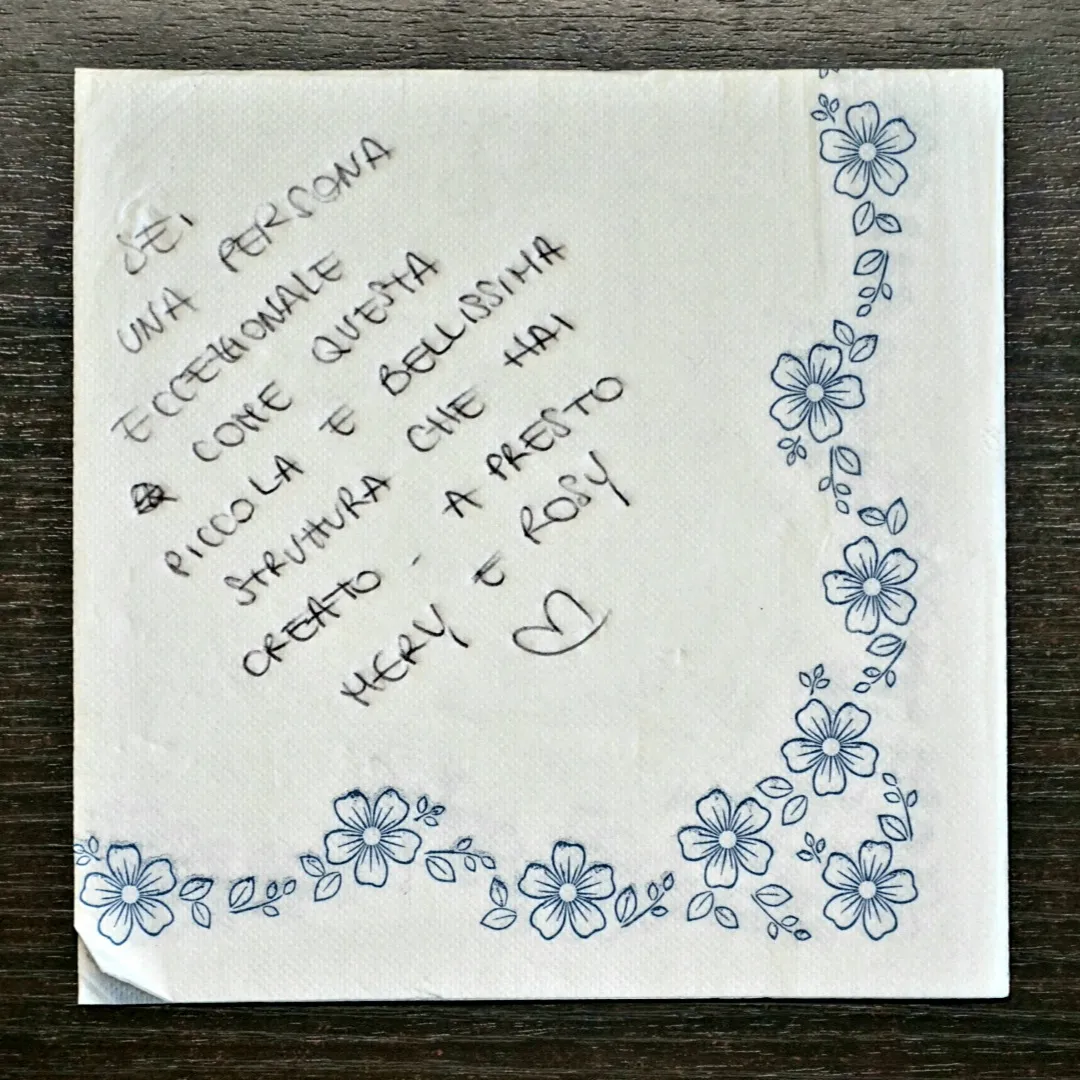 SEI
UNA PERSONA
ECCEZIONALE
COME QUESTA
PICCOLA E BELLISSIMA
STRUTTURA CHE HAI
CREATO - A PRESTO
MERY E ROSY